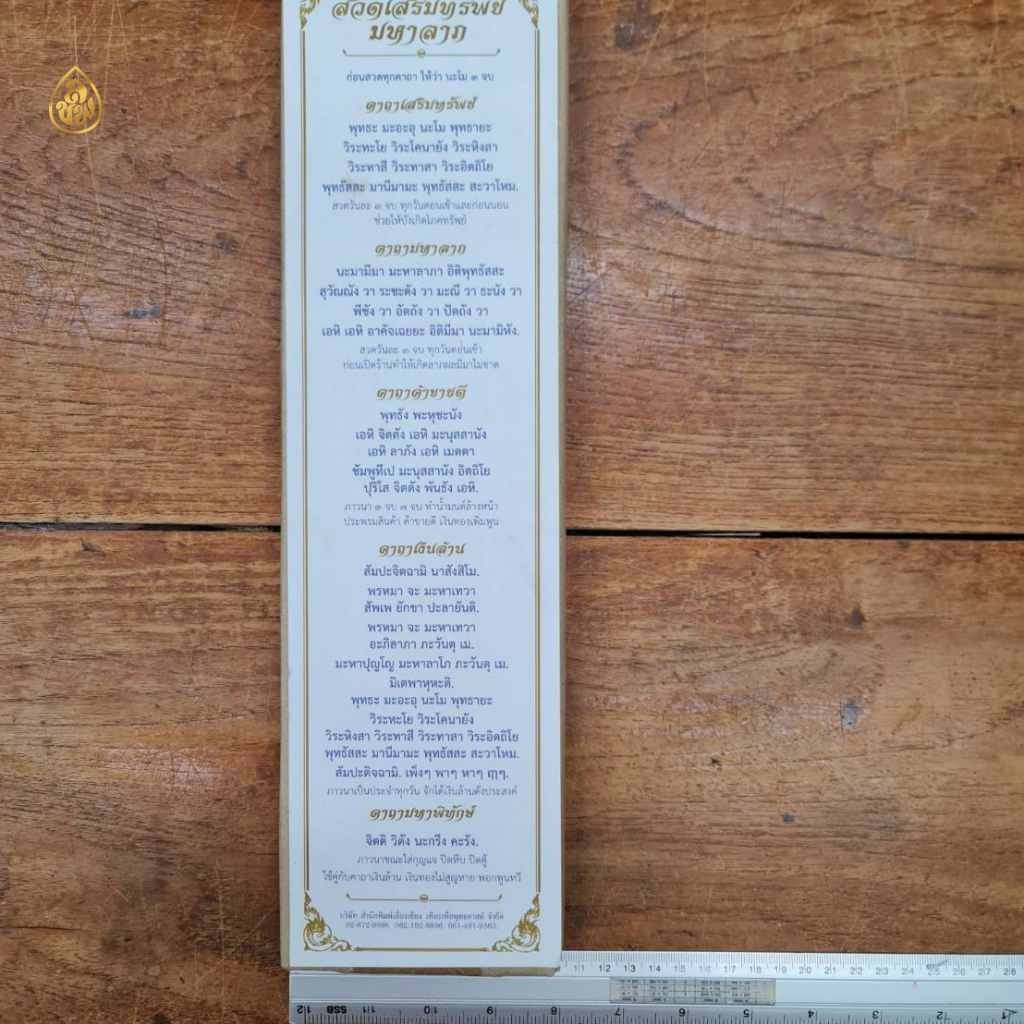 สวดเสริมทรัพย์
มหาลาภ
ก่อนสวดทุกคาถา ให้ว่า นะโม ๓ จบ
คาถาเสริมทรัพย์
พุทธะ มะอะอุ นะโม พุทธายะ
วิระทะโย วิระโคนายัง วิระหิงสา
วิระทาสี วิระทาสา วิระอิตถิโย
พุทธัสสะ มานีมามะ พุทธัสสะ สะวาโหม.
สวดวันละ ๓ จบ ทุกวันตอนเช้าและก่อนนอน
ช่วยให้บังเกิดโภคทรัพย์
คาถามหาลาภ
นะมามีมา มะหาลาภา อิติพุทธัสสะ
สุวัณณัง วา ระชะตัง วา มะณี วา ธะนัง วา
พีชัง วา อัตถัง วา ปัตถัง วา
เอหิ เอหิ อาคัจเฉยยะ อิติมีมา นะมามิหัง.
สวดวันละ ๓ จบ ทุกวันตอนเช้า
ก่อนเปิดร้านทำให้เกิดลาภผลมีมาไม่ขาด
คาถาค้าขายดี
พุทธัง พะหุชะนัง
เอหิ จิตตัง เอหิ มะนุสสานัง
เอหิ ลาภัง เอหิ เมตตา
ชัมพูทีเป มะนุสสานัง อิตถิโย
ปุริโส จิตตัง พันธัง เอหิ.
ภาวนา ๓ จบ ๗ จบ ทำน้ำมนต์ล้างหน้า
ประพรมสินค้า ค้าขายดี เงินทองเพิ่มพูน
คาถาเงินล้าน
สัมปะจิตฉามิ นาสังสิโม.
พรหมา จะ มะหาเทวา
สัพเพ ยักขา ปะลายันติ.
พรหมา จะ มะหาเทวา
อะภิลาภา ภะวันตุ เม.
มะหาปุญโญ มะหาลาโภ ภะวันตุ เม.
มิเตพาหุหะติ.
พุทธะ มะอะอุ นะโม พุทธายะ
วิระทะโย วิระโคนายัง
วิระหิงสา วิระทาสี วิระทาสา วิระอิตถิโย
พุทธัสสะ มานีมามะ พุทธัสสะ สะวาโหม.
สัมปะติจฉามิ. เพ็งๆ พาๆ หาๆ ฤๅๆ.
ภาวนาเป็นประจำทุกวัน จักได้เงินล้านดังประสงค์
คาถามหาพิทักษ์
จิตติ วิตัง นะกรึง คะรัง.
ภาวนาขณะใส่กุญแจ ปิดหีบ ปิดตู้
ใช้คู่กับคาถาเงินล้าน เงินทองไม่สูญหาย พอกพูนทวี
บริษัท สำนักพิมพ์เลี่ยงเชียง เพียรเพื่อพุทธศาสน์ จำกัด
02-872-9898,
11 12 13 14 15 16 17 18 19 20 21 22 23 24 25 26 27 28
12 SSB 11 10 9 8 7 6 5 4 3 2 1